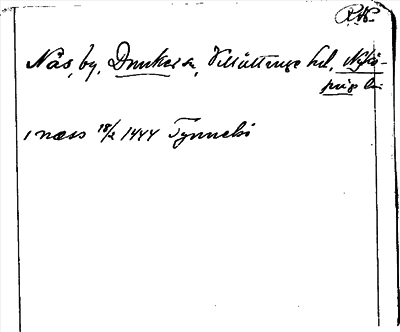 R.W.
Näs, by, Dunker sn, Villåttinge hd, Nykö-
pings län
i næss 18/2 1444 Tynnelsö